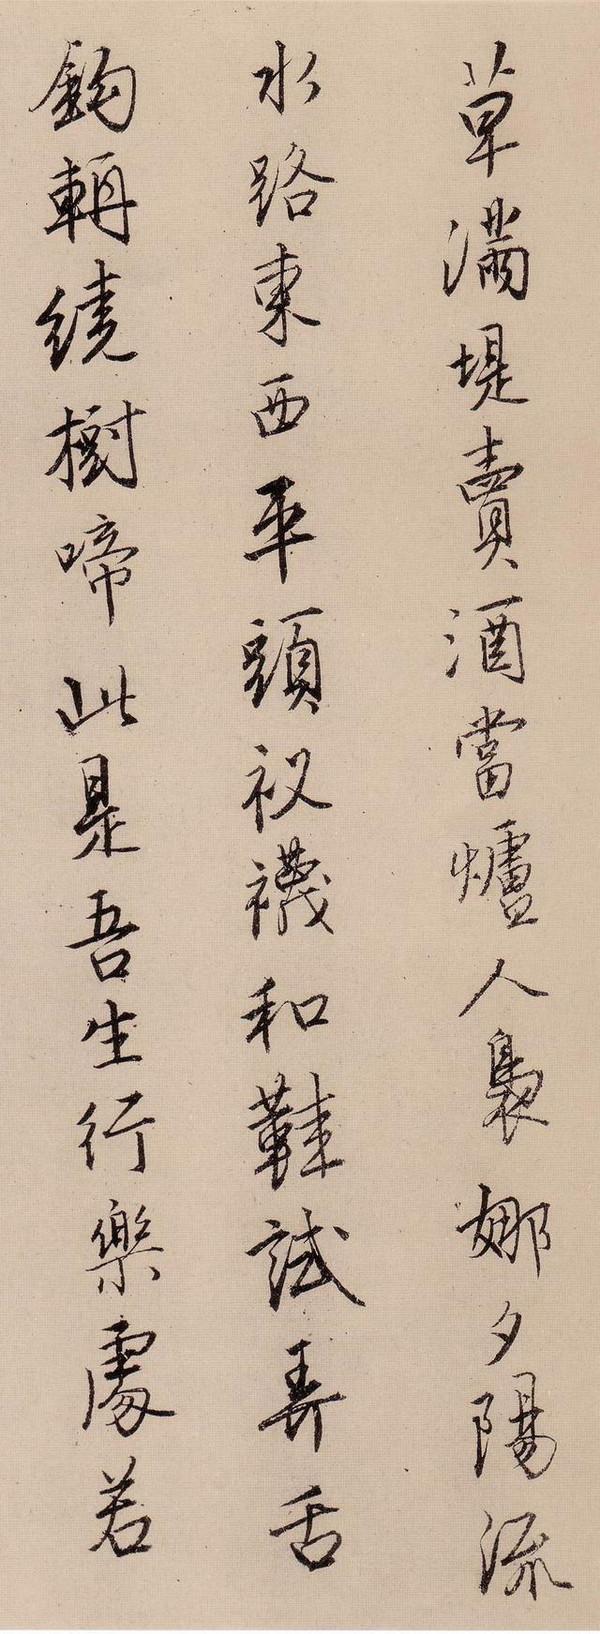 草滿堤賣酒當爐人裊娜夕陽流
水路東西平頭衩襪和鞋試弄舌
鈎輈繞樹啼此是吾生行樂處若